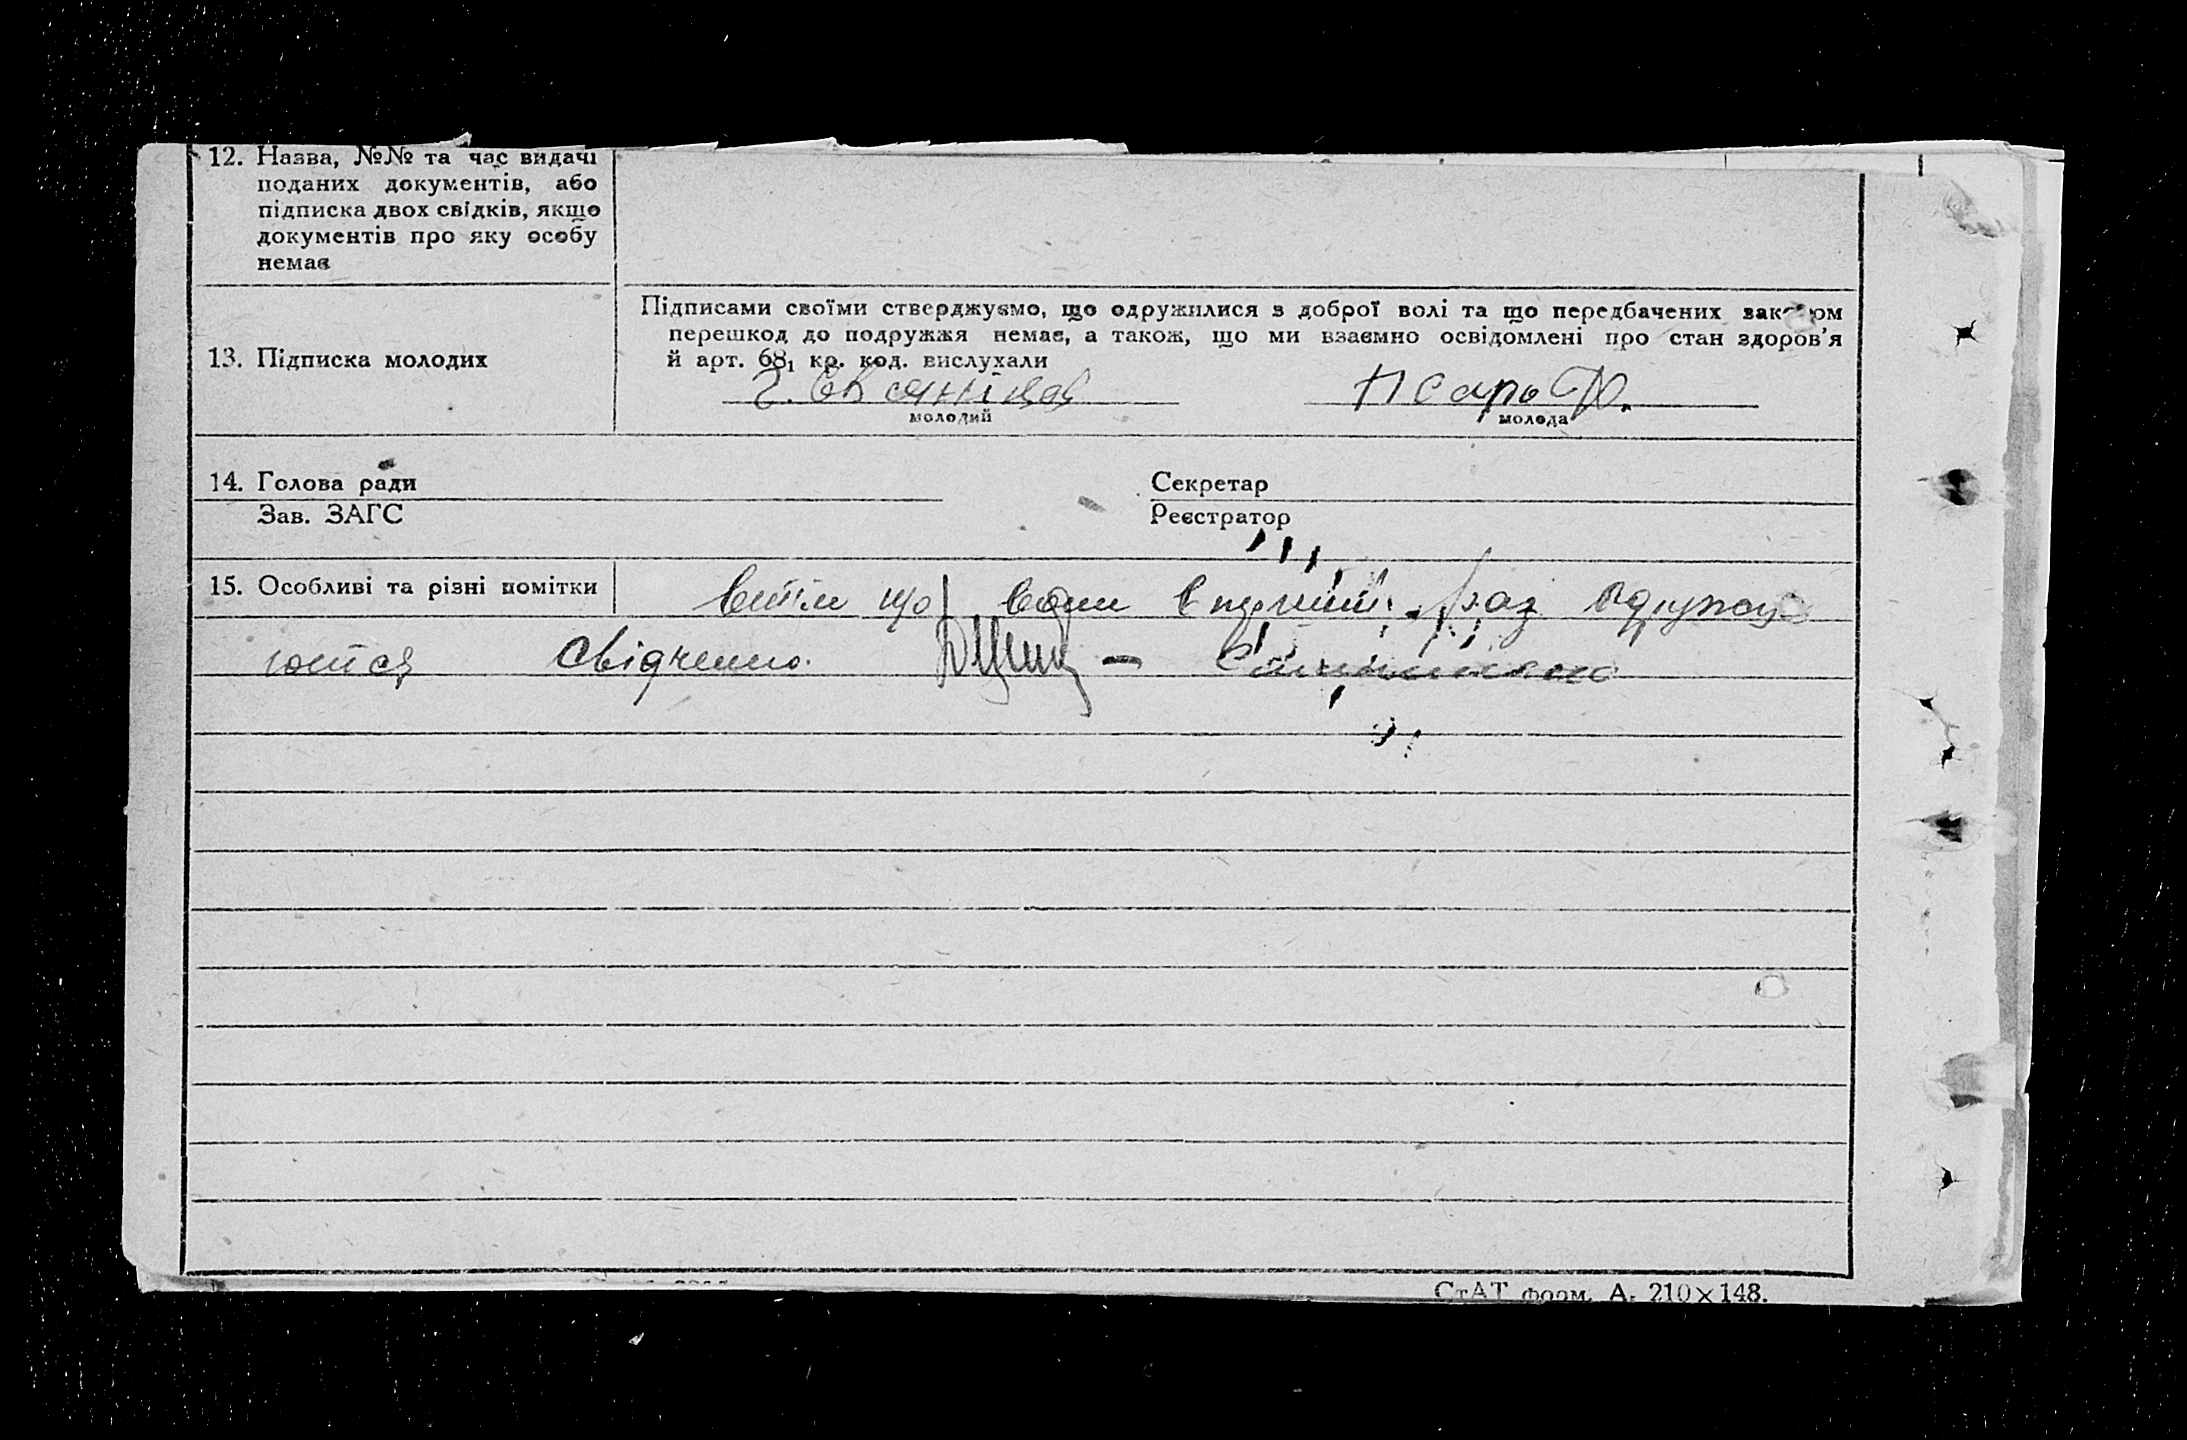 12. Назва, №№ та час видачі
поданих документів, або
підписка двох свідків, якщо
документів про яку особу
немає
13. Підписка молодих
Підписами своїми стверджуємо, що одружилися з доброї волі та що передбачених законом
перешкод до подружжя немає, а також, що ми взаємно освідомлені про стан здоров'я
й арт. 68₁ кр. код. вислухали
молодий
молода
14. Голова ради
Секретар
Зав. ЗАГС
Реєстратор
15. Особливі та різні помітки
що вони раз одружу
ются свідчимо
СтАТ форм. А. 210×148.